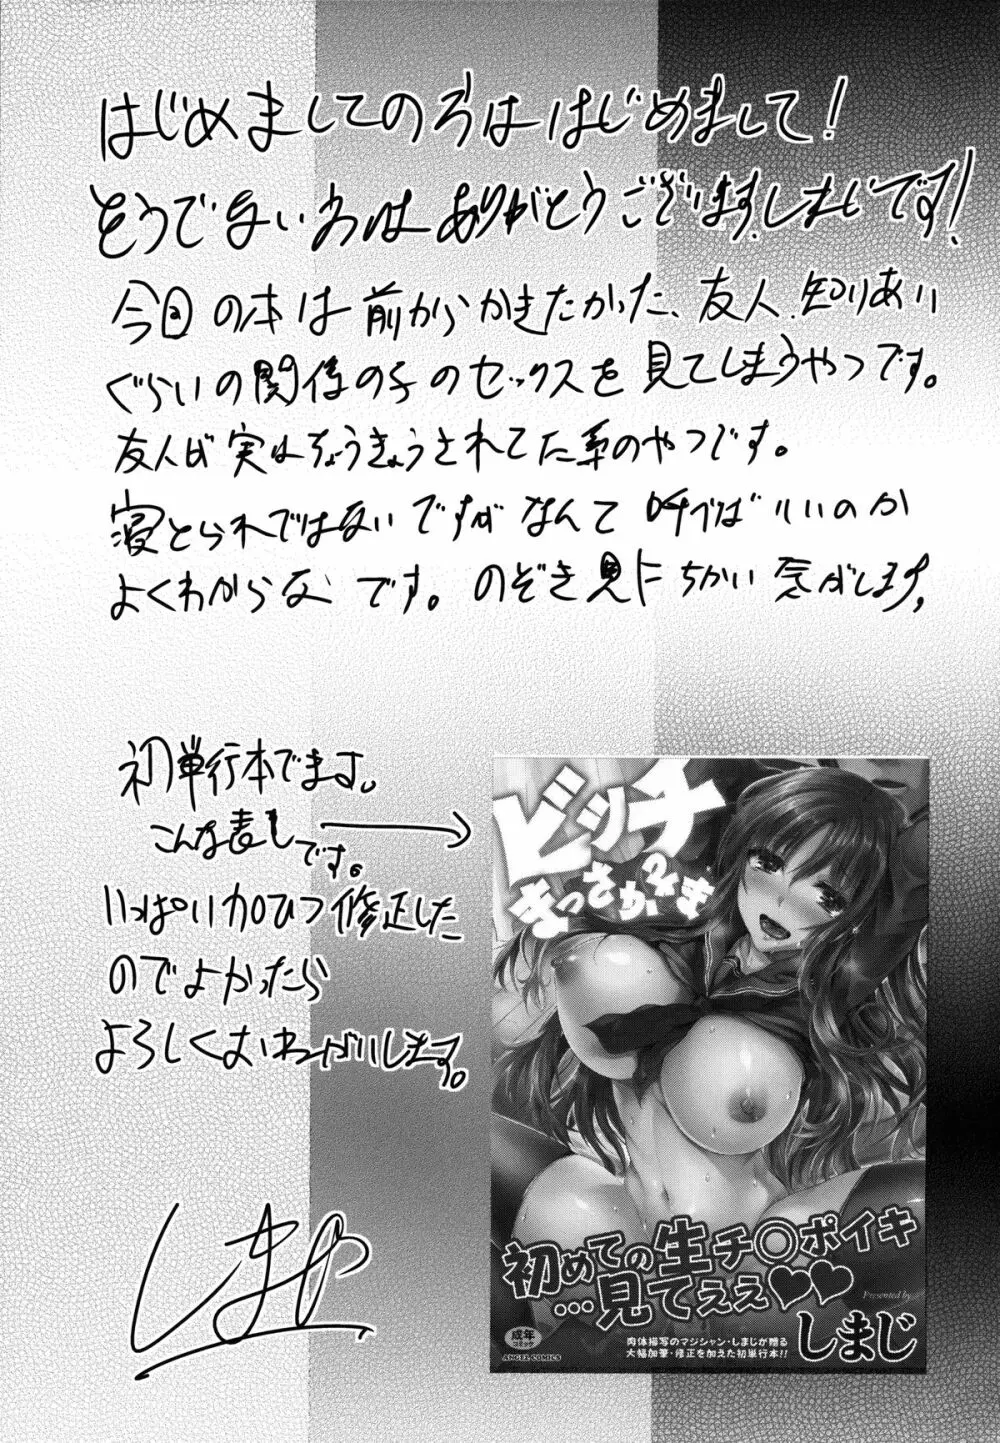 はじめましての方ははじめまして!
そうでない方はありがとうございます。しまじです!
今回の本は前からかきたかった、友人、知りあい
ぐらいの関係の子のセックスを見てしまうやつです。
友人が実はちょうきょうされてた系のやつです。
寝とられではないですがなんて呼べばいいのか
よくわからないです。のぞき見にちかい気がします。
初単行本でます。
こんな表しです。
いっぱい加ひつ修正した
のでよかったら
よろしくおねがいします。
ビッチ
まっさかさま
初めての生チ〇ポイキ
…見てぇぇ♥♥
Presented by
しまじ
成年
コミック
ANGEL COMICS
肉体描写のマジシャン・しまじが贈る
大幅加筆・修正を加えた初単行本!!